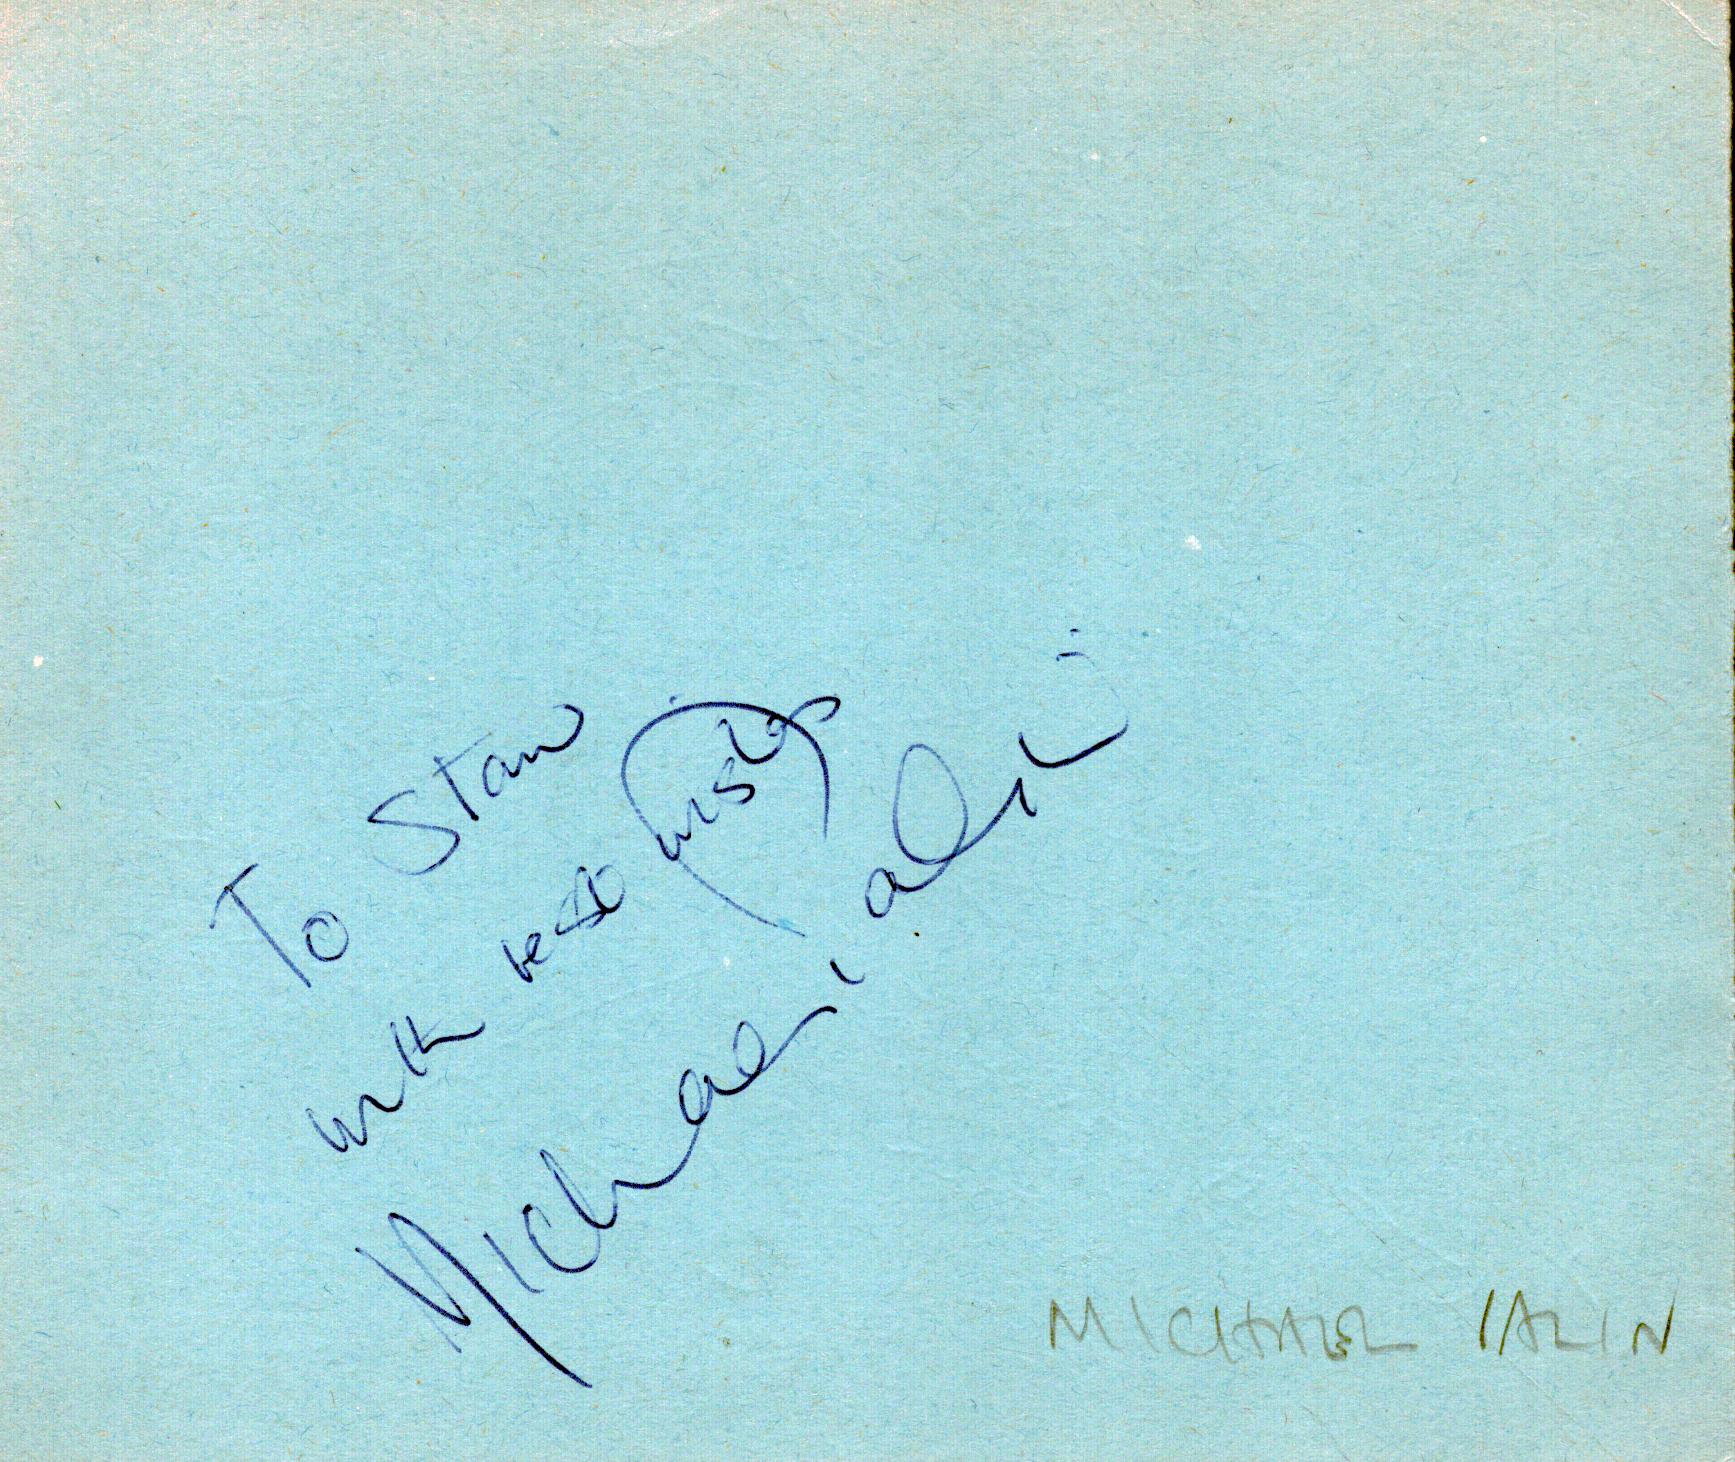 To Stan
with best wishes
Michael Palin
MICHAEL PALIN